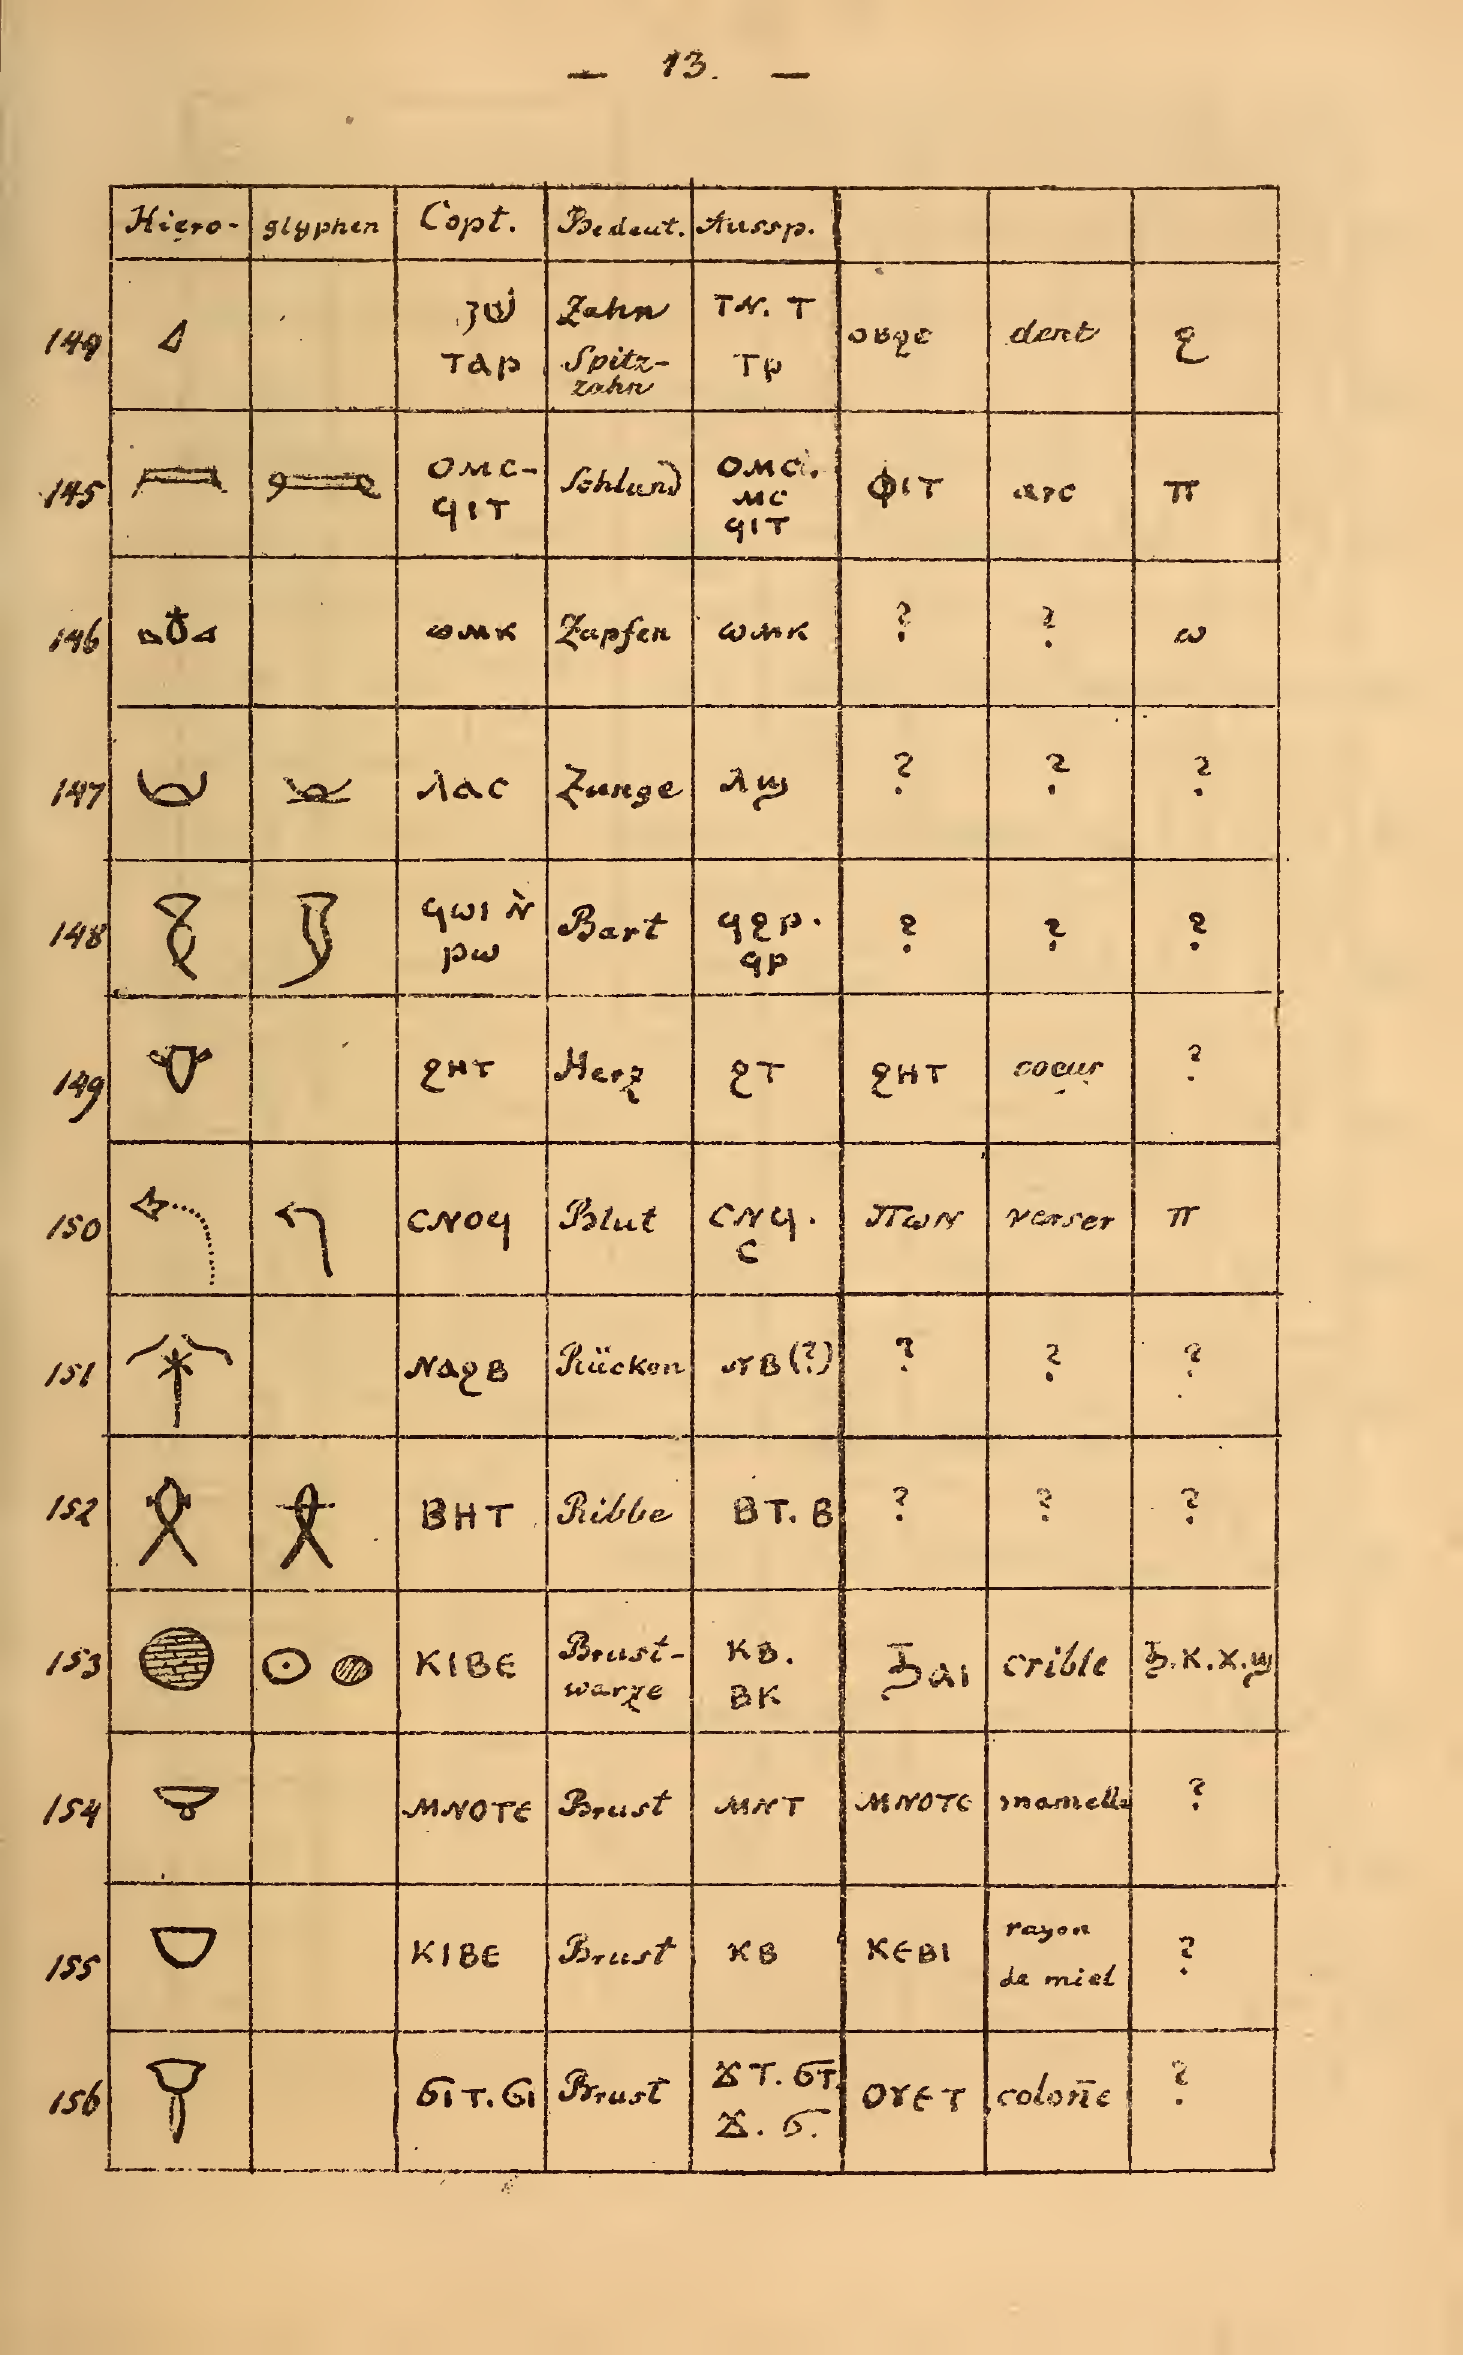 — 13. —
Hiero- glyphen Copt. Bedeut. Aussp.
144 שן Zahn ⲧⲛ. ⲧ ⲟⲃϩⲉ dent ϩ
ⲧⲁⲣ Spitz- ⲧⲣ
zahn
145 ⲟⲙⲥ- Schlund ⲟⲙⲥ. ⲫⲓⲧ arc ⲡ
ϥⲓⲧ ⲙⲥ
ϥⲓⲧ
146 ⲱⲙⲕ Zapfen ⲱⲙⲕ ? ? ⲱ
147 ⲗⲁⲥ Zunge ⲗϣ ? ? ?
148 ϥⲱⲓ ⲛ̀ Bart ϥϩⲣ. ? ? ?
ⲣⲱ ϥⲣ
149 ϩⲏⲧ Herz ϩⲧ ϩⲏⲧ coeur ?
150 ⲥⲛⲟϥ Blut ⲥⲛϥ. ⲡⲱⲛ verser ⲡ
ⲥ
151 ⲛⲁϩⲃ Rücken ⲛⲃ(?) ? ? ?
152 ⲃⲏⲧ Ribbe ⲃⲧ. ⲃ ? ? ?
153 ⲕⲓⲃⲉ Brust- ⲕⲃ. ϧⲁⲓ crible ϧ.ⲕ.ⲭ.ϣ
warze ⲃⲕ
154 ⲙⲛⲟⲧⲉ Brust ⲙⲛⲧ ⲙⲛⲟⲧⲉ mamelle ?
155 ⲕⲓⲃⲉ Brust ⲕⲃ ⲕⲉⲃⲓ rayon ?
de miel
156 ϭⲓⲧ. ϭⲓ Brust ϫⲧ. ϭⲧ. ⲟⲩⲉⲧ colon̄e ?
ϫ. ϭ.